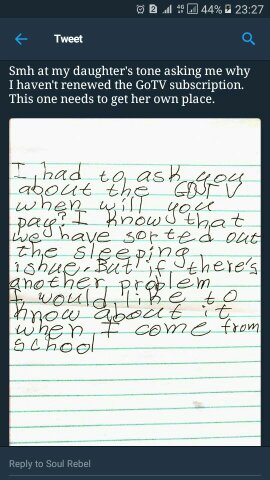 44% 23:27
Tweet
Smh at my daughter's tone asking me why
I haven't renewed the GoTV subscription.
This one needs to get her own place.
I had to ask you
about the GOTV
when will you
pay? I know that
we have sorted out
the sleeping
ishue. But if there's
another problem
I would like to
know about it
when I come from
school
Reply to Soul Rebel